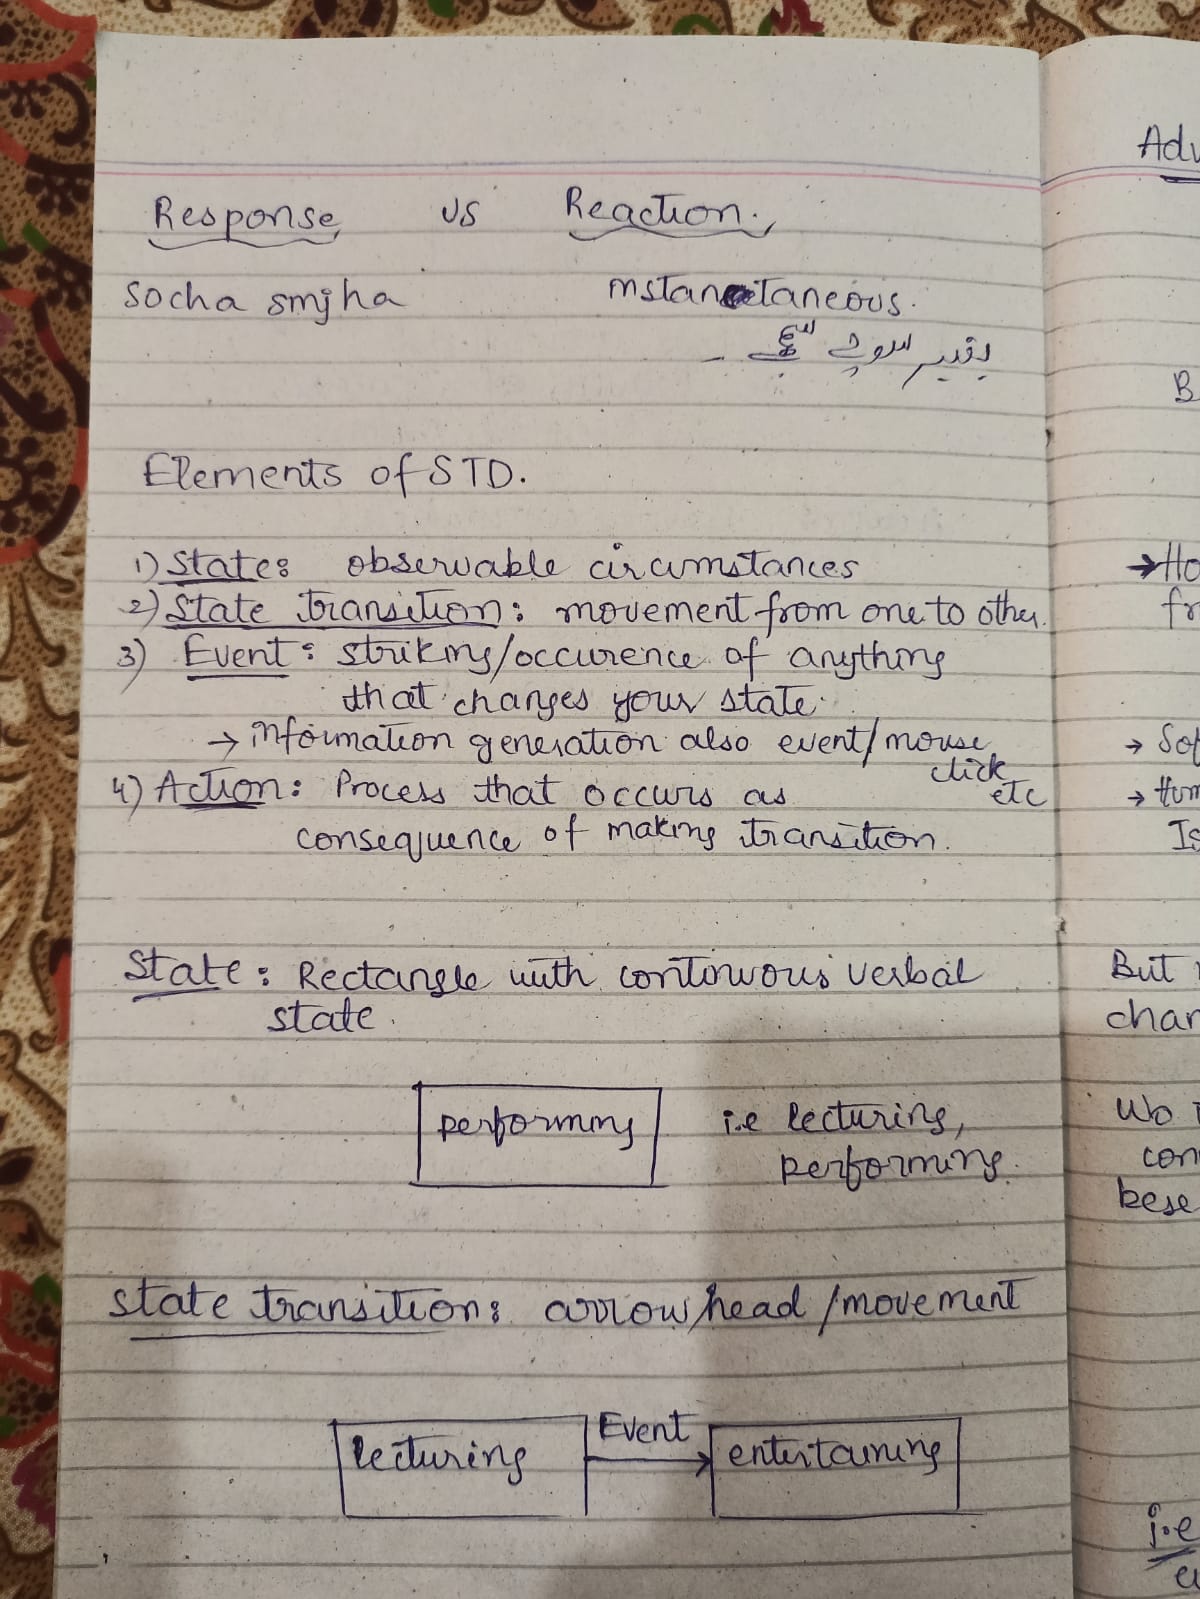 Response vs Reaction.
Socha smjha instantaneous.
بغیر سوچے سمجھے ۔
Elements of STD.
1) State: observable circumstances
2) State transition: movement from one to other.
3) Event: striking/occurence of anything
that changes your state.
→ information generation also event/mouse
click
4) Action: Process that occurs as etc
consequence of making transition.
State: Rectangle with continuous verbal
state.
performing i.e lecturing,
performing.
state transition: arrow head/movement
lecturing Event entertaining
Adv
B
→ Ho
fr
→ Sof
→ Hum
Is
But
char
Wo
con
bese
i.e